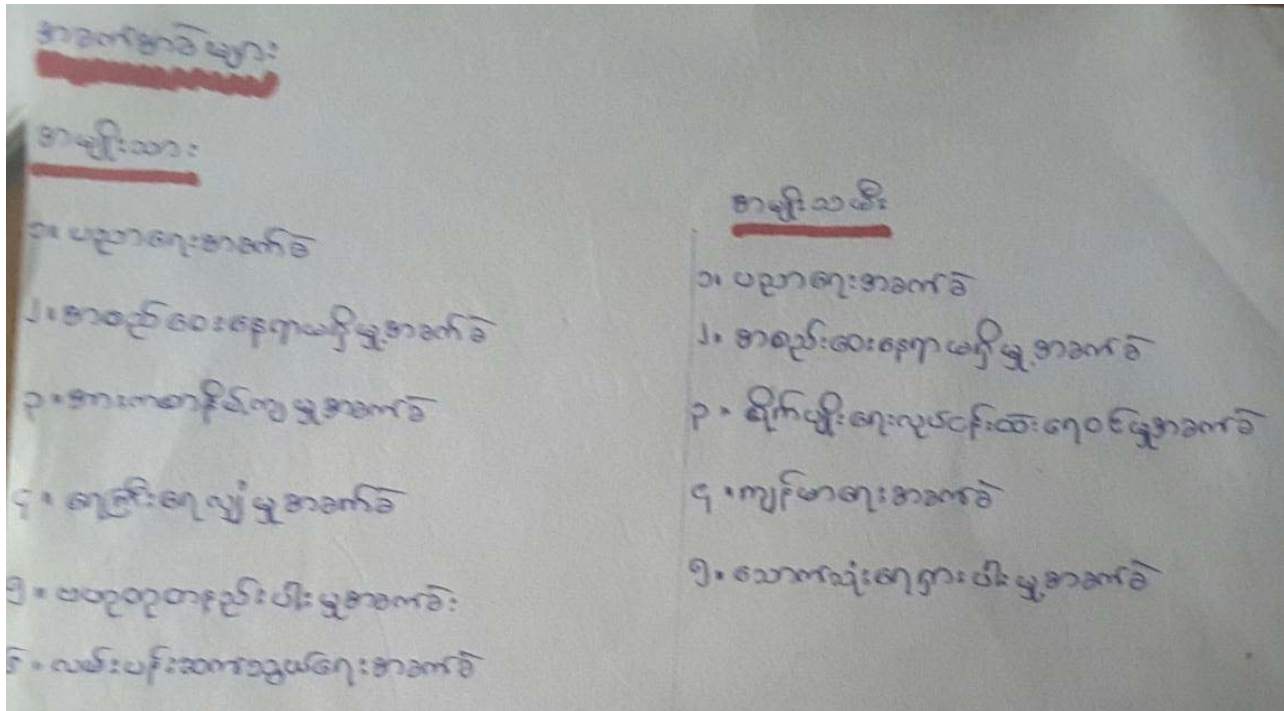 အခက်အခဲများ
အမျိုးသား
၁။ ပညာရေးအခက်ခဲ
၂။ အစည်ဝေးနေရာမရှိမှု့အခက်ခဲ
၃။ အားကစားနိမ့်ကျမှုအခက်ခဲ
၄။ ရေကြီးရေလျှံမှုအခက်ခဲ
၅။ ဗဟုသုတနည်းပါးမှုအခက်ခဲး
၆။ လမ်းပန်းဆက်သွယ်ရေးအခက်ခဲ
အမျိုးသမီး
၁။ ပညာရေးအခက်ခဲ
၂။ အစည်းဝေးနေရာမရှိမှု့အခက်ခဲ
၃။ စိုက်ပျိုးရေးလုပ်ငန်းထဲးရေဝင်မှုအခက်ခဲ
၄။ ကျန်မာရေးအခက်ခဲ
၅။ သောက်သုံးရေရှားပါးမှု့အခက်ခဲ